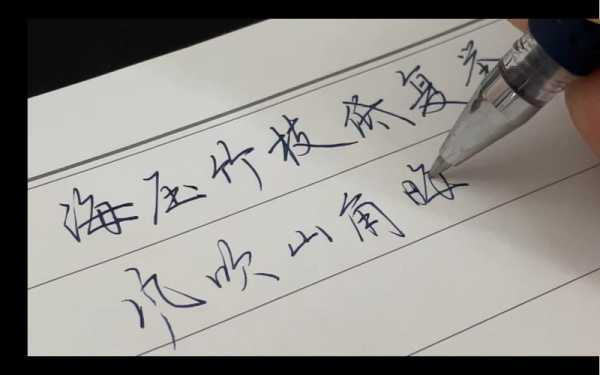 海压竹枝低复举
风吹山角晦